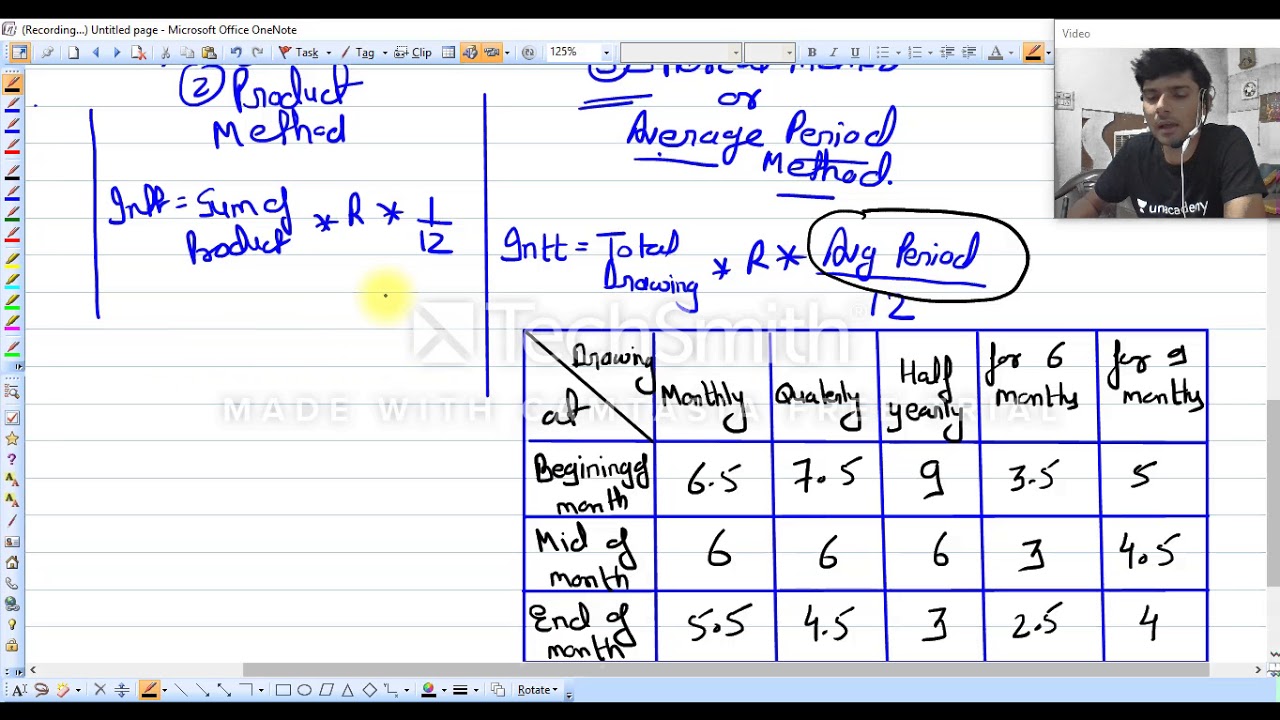 (Recording...) Untitled page - Microsoft Office OneNote
Video
Task
Tag
Clip
125%
B I U
A
② Product
Method
or
Average Period
Method.
Intt = Sum of Product * R * 1/12
Intt = Total Drawing * R * Avg Period/12
unacademy
TechSmith
MADE WITH CAMTASIA FREE TRIAL
Drawing
at
Monthly
Quaterly
Half
yearly
for 6
months
for 9
months
Begining of
month
6.5 7.5 9 3.5 5
Mid of
month
6 6 6 3 4.5
End of
month
5.5 4.5 3 2.5 4
Rotate